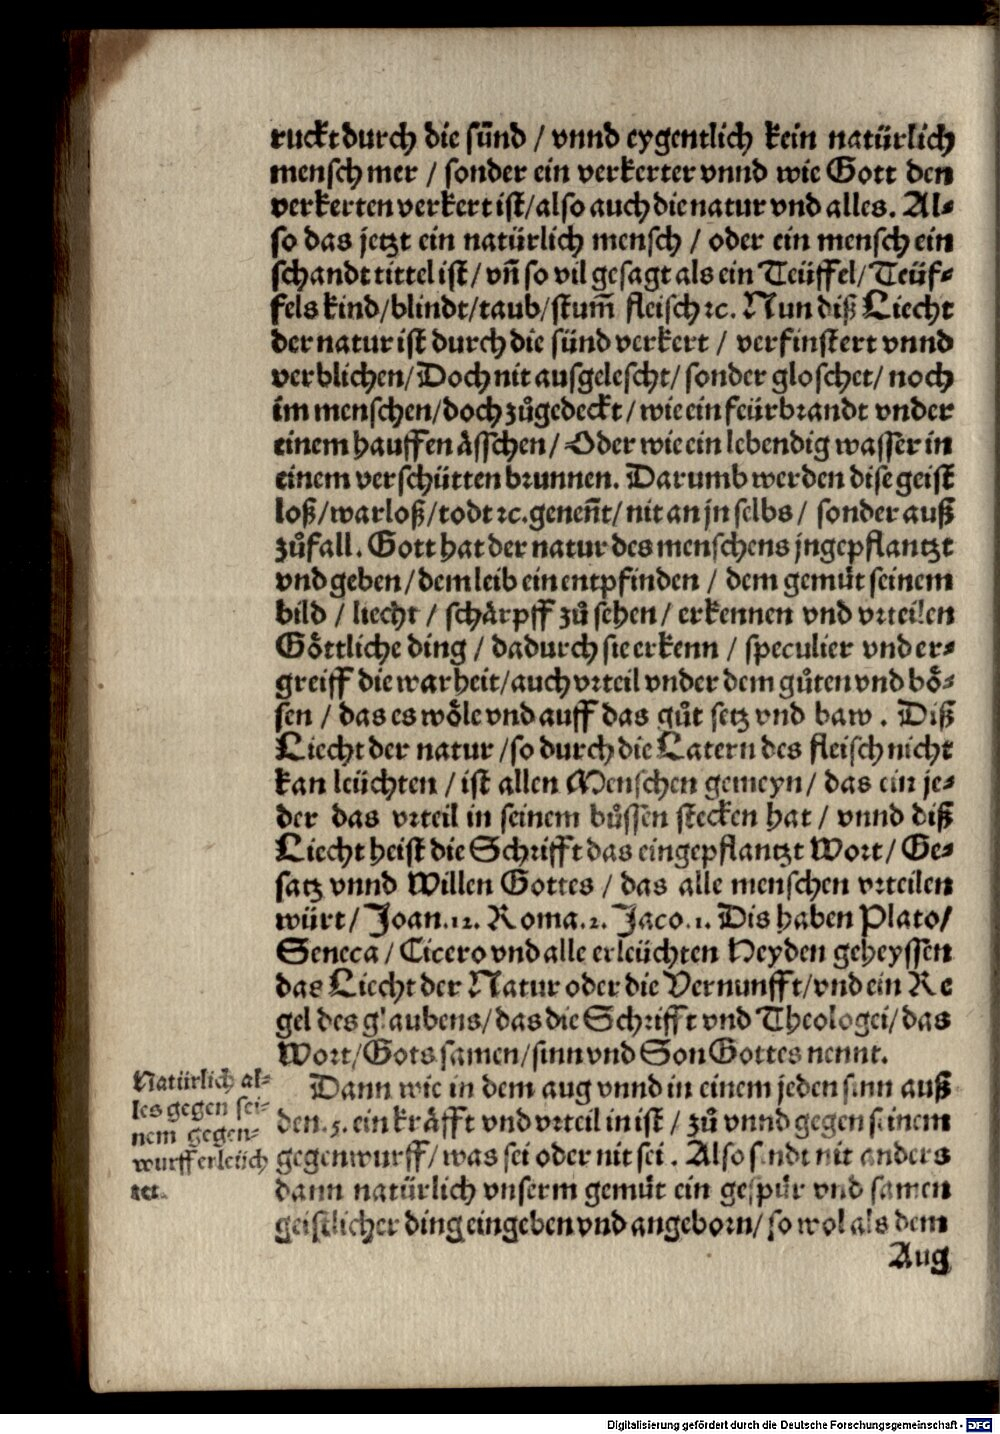 ruckt durch die sünd / vnnd eygentlich kein natürlich
mensch mer / sonder ein verkerter vnnd wie Gott den
verkerten verkert ist/also auch die natur vnd alles. Al⸗
so das jetzt ein natürlich mensch / oder ein mensch ein
schandt tittel ist/ vñ so vil gesagt als ein Teüffel/ Teüf⸗
fels kind/blindt/taub/stum̃ fleisch ꝛc. Nun diß Liecht
der natur ist durch die sünd verkert / verfinstert vnnd
verblichen/ Doch nit ausgelescht/ sonder gloschet/ noch
im menschen/doch zůgedeckt/ wie ein feürbrandt vnder
einem hauffen åsschen/ Oder wie ein lebendig wasser in
einem verschütten brunnen. Darumb werden dise geist
loß/warloß/todt ꝛc.geneñt/ nit an jn selbs / sonder auß
zůfall. Gott hat der natur des menschens jngepflantzt
vnd geben/ dem leib ein entpfinden / dem gemůt seinem
bild / liecht / schårpff zů sehen/ erkennen vnd vrteilen
Göttliche ding / dadurch sie erkenn / speculier vnd er⸗
greiff die warheit/auch vrteil vnder dem gůten vnd bö⸗
sen / das es wöle vnd auff das gůt setz vnd baw . Diß
Liecht der natur /so durch die Latern des fleisch nicht
kan leüchten / ist allen Menschen gemeyn/ das ein je⸗
der das vrteil in seinem bůssen stecken hat / vnnd diß
Liecht heist die Schrifft das eingepflantzt Wort/ Ge⸗
satz vnnd Willen Gottes / das alle menschen vrteilen
würt/ Joan.12. Roma.2. Jaco.1. Dis haben Plato/
Seneca / Cicero vnd alle erleüchten Heyden geheyssen
das Liecht der Natur oder die Vernunfft/vnd ein Re
gel des glaubens/das die Schrifft vnd Theologei/das
Wort/Gots samen/sinn vnd Son Gottes nennt.
Natürlich al⸗
les gegen sei⸗
nem gegen⸗
wurff erleüch
tet.
Dann wie in dem aug vnnd in einem jeden sinn auß
den.5. ein kräfft vnd vrteil in ist / zů vnnd gegen seinem
gegenwurff/ was sei oder nit sei . Also sindt nit anders
dann natürlich vnserm gemůt ein gespür vnd samen
geistlicher ding eingeben vnd angeborn/ so wol als dem
Aug
Digitalisierung gefördert durch die Deutsche Forschungsgemeinschaft - DFG